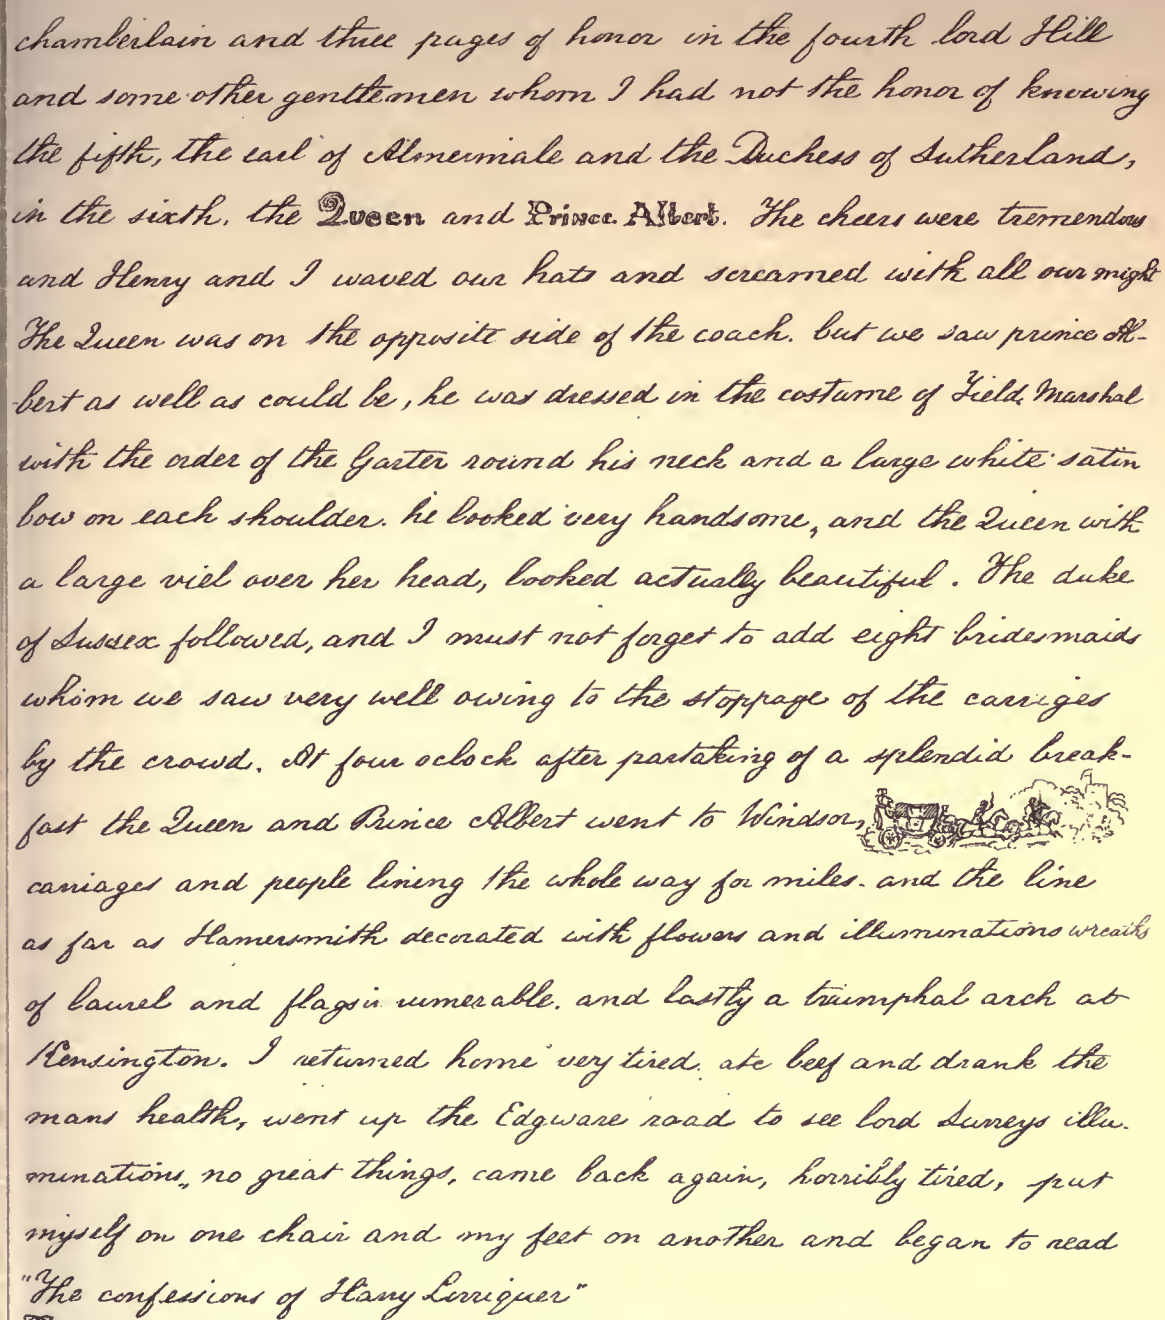 chamberlain and three pages of honor in the fourth lord Hill
and some other gentlemen whom I had not the honor of knowing
the fifth, the earl of Almermale and the Duchess of Sutherland,
in the sixth, the Queen and Prince Albert. The cheers were tremendous
and Henry and I waved our hats and screamed with all our might
The Queen was on the opposite side of the coach. but we saw prince Al-
-bert as well as could be, he was dressed in the costume of Field Marshal
with the order of the Garter round his neck and a large white satin
bow on each shoulder. he looked very handsome, and the Queen with
a large viel over her head, looked actually beautiful. The duke
of Sussex followed, and I must not forget to add eight bridesmaids
whom we saw very well owing to the stoppage of the carriges
by the crowd. At four oclock after partaking of a splendid break-
fast the Queen and Prince Albert went to Windsor,
carriages and people lining the whole way for miles. and the line
as far as Hamersmith decorated with flowers and illuminations wreaths
of laurel and flags in numerable. and lastly a triumphal arch at
Kensington. I returned home very tired. ate beef and drank the
mans health, went up the Edgware road to see lord Surreys illu-
minations, no great things, came back again, horribly tired, put
myself on one chair and my feet on another and began to read
"The confessions of Harry Lorriquer"